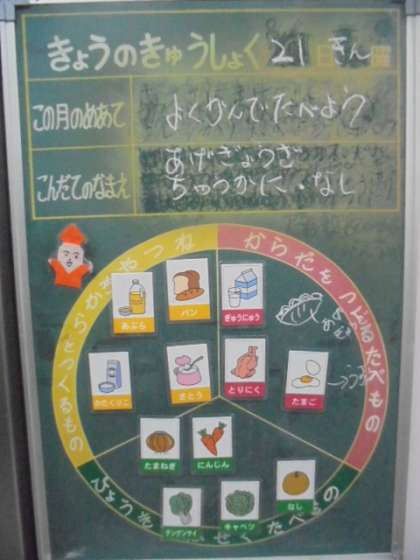 きょうのきゅうしょく 21日 きん曜
この月のめあて よくかんでたべよう
こんだてのなまえ あげぎょうざ
ちゅうかに・なし
ねつやちからをつくるもの
からだをつくるたべもの
あぶら
パン
ぎゅうにゅう
かたくりこ
さとう
とりにく
たまご
たまねぎ
にんじん
チンゲンサイ
キャベツ
なし